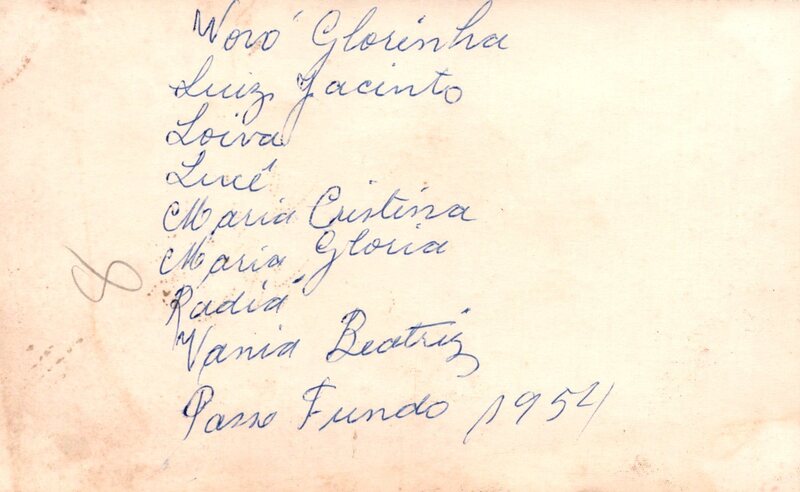 Vovó Glorinha
Luiz Jacinto
Loiva
Lucé
Maria Cristina
Maria Gloria
8
Radiá
Vania Beatriz
Passo Fundo 1954